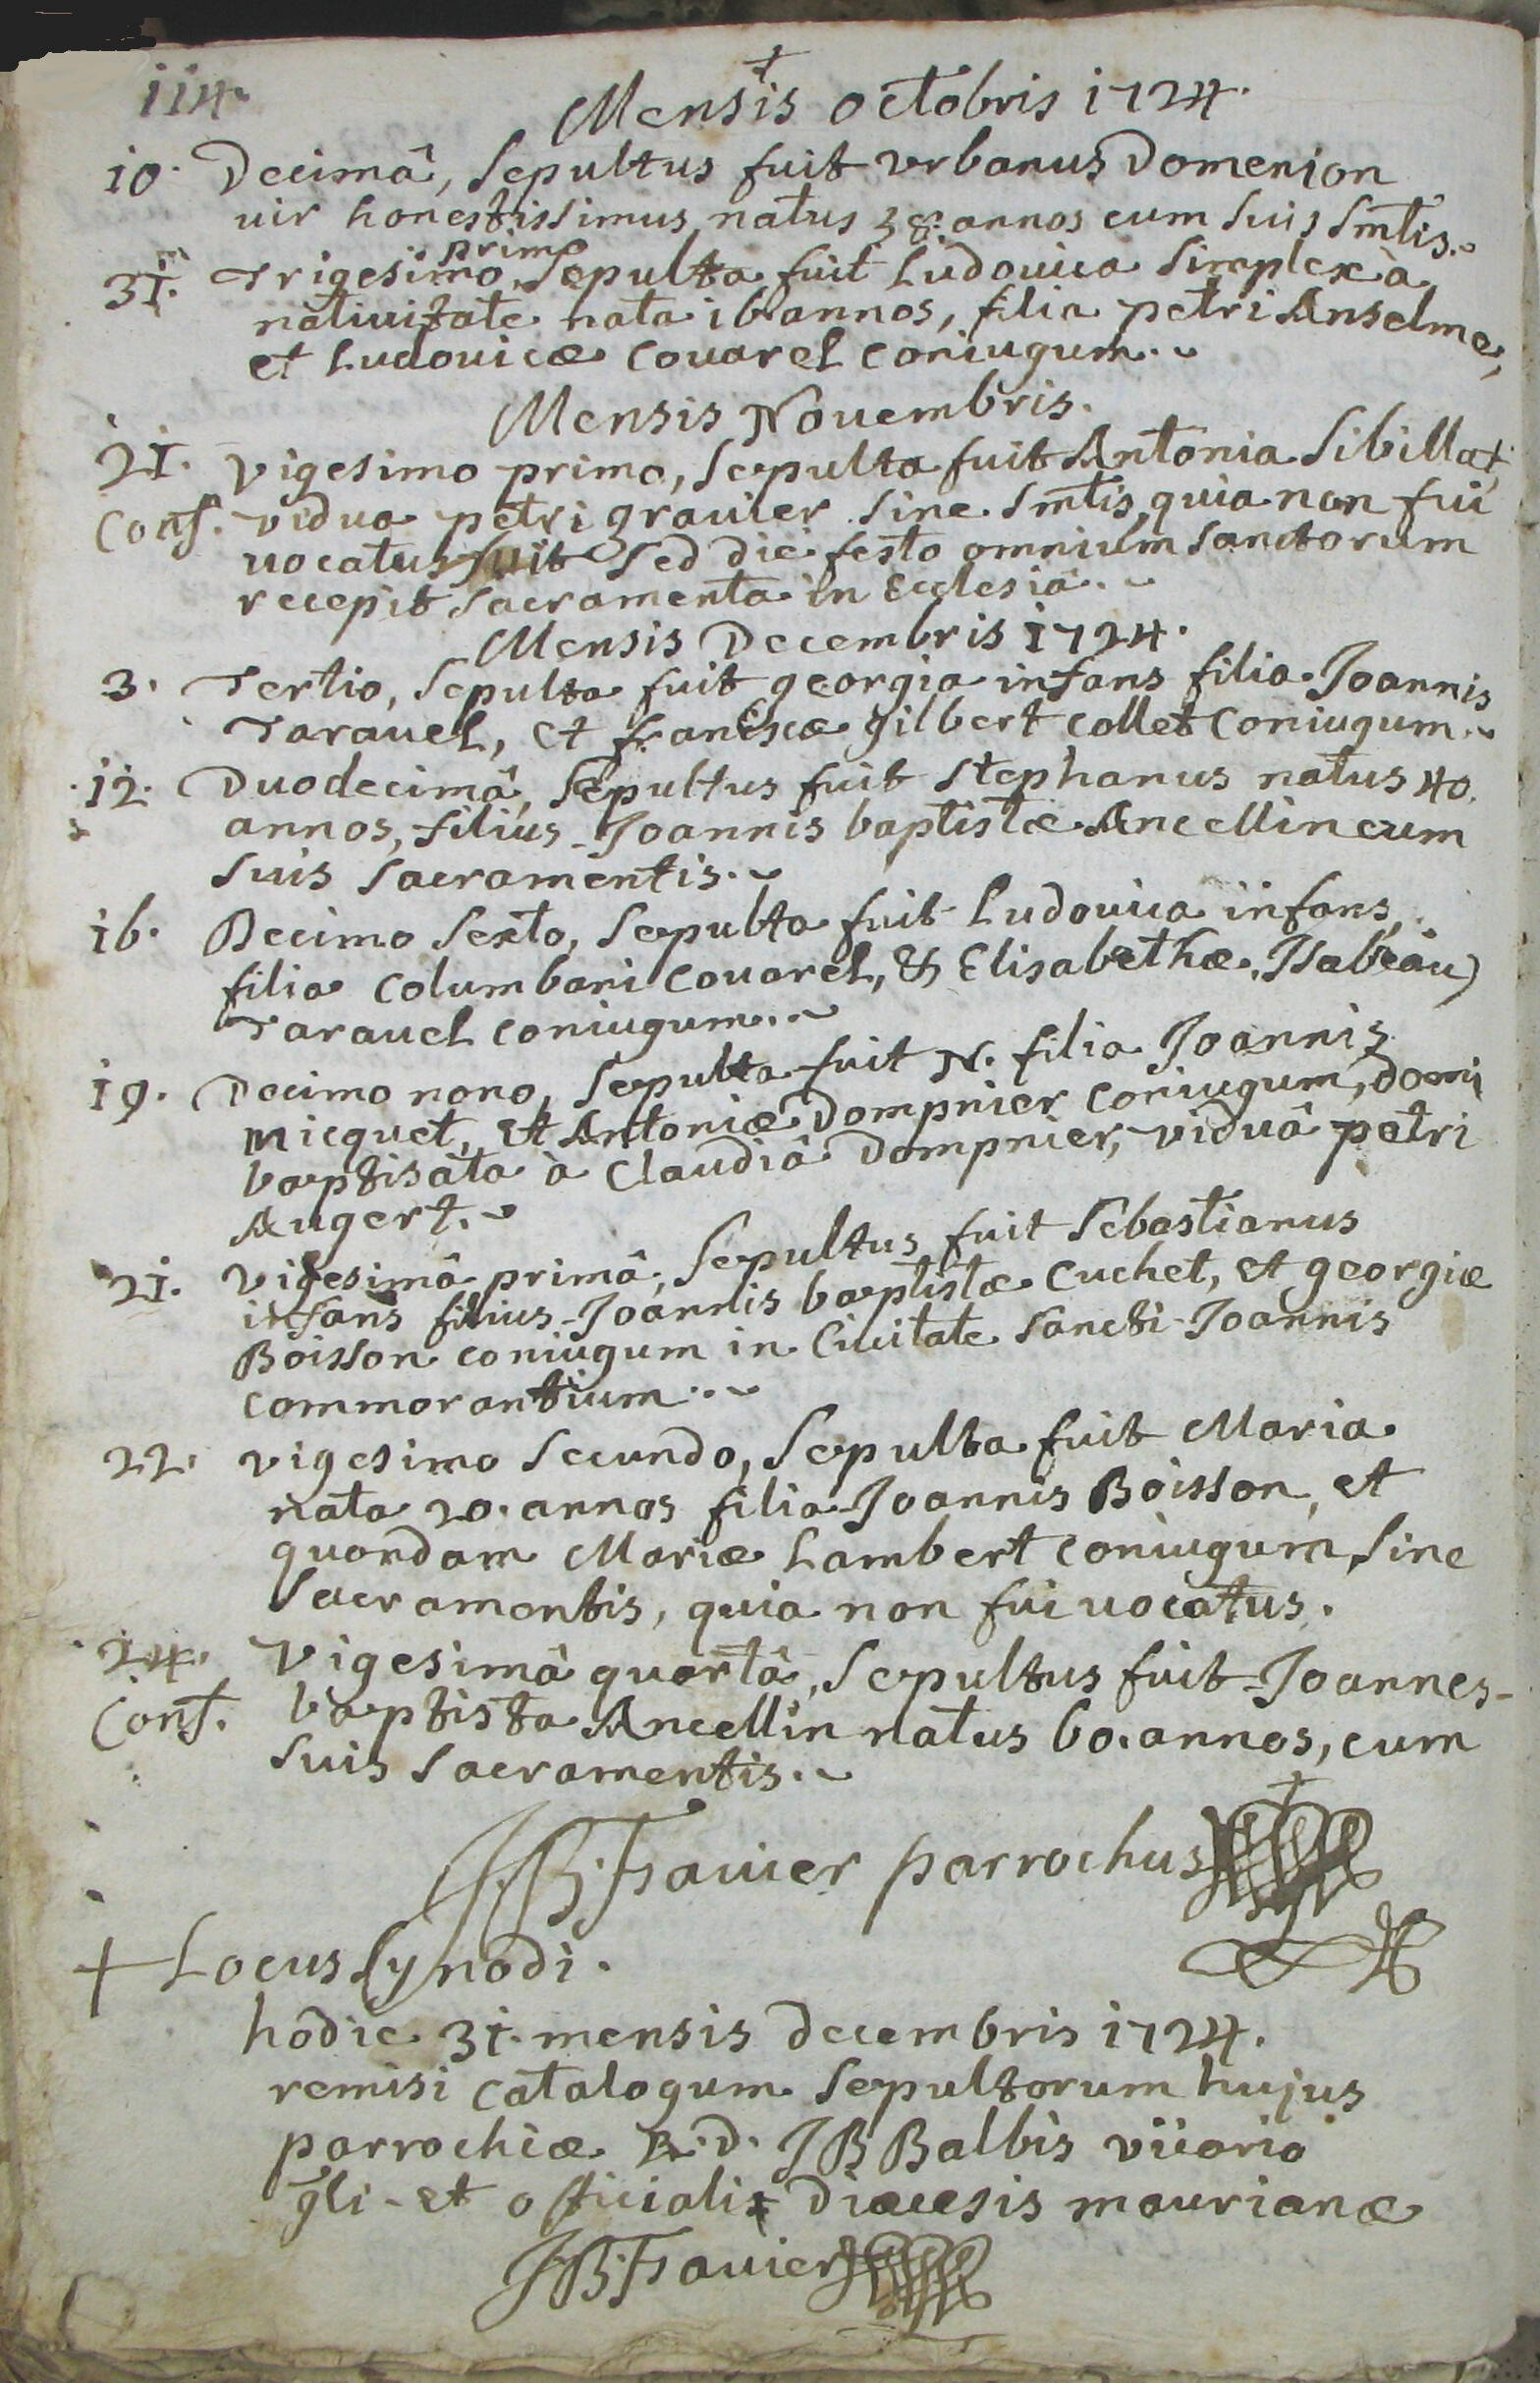 114.
Mensis octobris 1724.
10. Decimâ, sepultus fuit vrbanus Domenjon
uir honestissimus natus 38. annos cum suis Smtis.
31. Trigesimo primo, sepulta fuit Ludouica simplex à
natiuitate nata 16 annos, filia petri Anselme,
et Ludouicæ Couarel coniugum.
Mensis Nouembris.
21. Vigesimo primo, sepulta fuit Antonia Sibillat,
Conf. vidua petri grauier sine Smtis, quia non fui
uocatus sed die festo omnium sanctorum
recepit sacramenta in Ecclesiâ.
Mensis Decembris 1724.
3. Tertio, sepulta fuit georgia infans filia Joannis
Tarauel, et franciscæ gilbert collet coniugum.
12. Duodecimâ, sepultus fuit stephanus natus 40.
annos, filius Joannis baptistæ Ancellin cum
suis sacramentis.
16. Decimo sexto, sepulta fuit Ludouica infans,
filia Columbani Couarel, & Elisabethæ, Isabeau)
Tarauel coniugum.
19. Decimo nono, sepulta fuit N. filia Joannis
micquet, et Antoniæ Dompnier coniugum, domi
baptisata à Claudiâ Dompnier, viduâ petri
Augert.
21. Vigesimâ primâ, sepultus fuit Sebastianus
infans filius Joannis baptistæ Cuchet, et georgiæ
Boisson coniugum in Ciuitate sancti Joannis
commorantium.
22. vigesimo secundo, sepulta fuit Maria
nata 20. annos filia Joannis Boisson, et
quondam Mariæ Lambert coniugum, sine
sacramentis, quia non fui uocatus.
24. Vigesimâ quartâ, sepultus fuit Joannes-
Conf. baptista Ancellin natus 60. annos, cum
suis sacramentis.
JB. Trauier parrochus
Locus synodi.
hodie 31. mensis decembris 1724.
remisi catalogum sepultorum hujus
parrochiæ R. d. JB Balbis vicario
gli. et officiali diæcesis maurianæ
J.B. Trauier